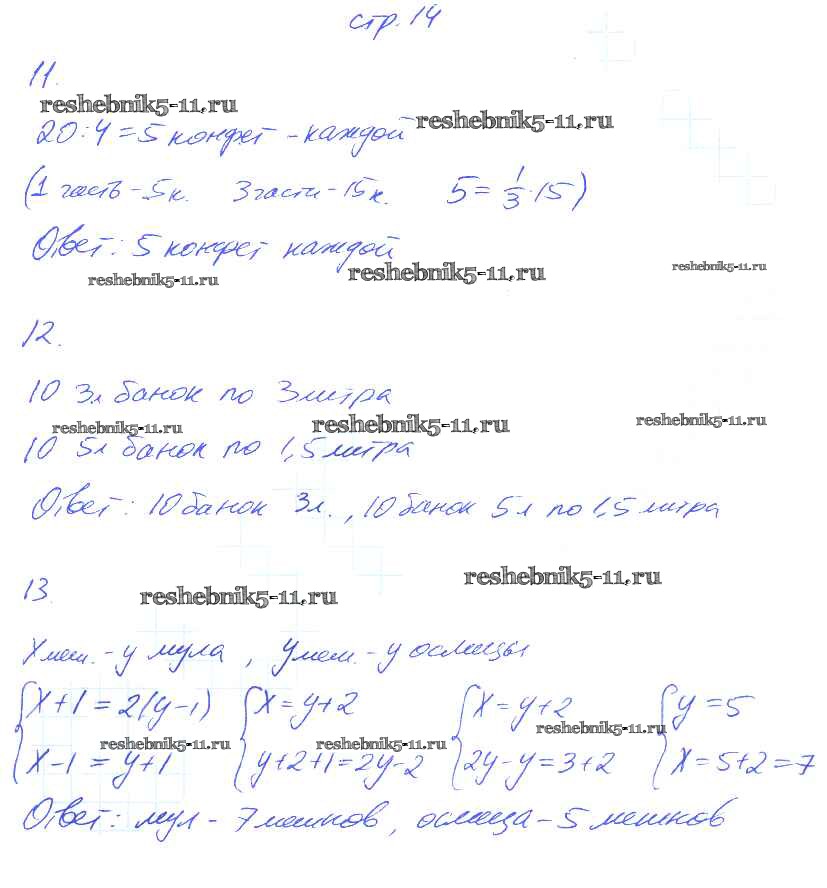 стр. 14
11.
reshebnik5-11.ru
20:4=5 конфет - каждой
reshebnik5-11.ru
(1 часть - 5к. 3 части - 15к. 5 = 1/3 · 15)
Ответ: 5 конфет каждой
reshebnik5-11.ru reshebnik5-11.ru reshebnik5-11.ru
12.
10 3л банок по 3 литра
reshebnik5-11.ru reshebnik5-11.ru reshebnik5-11.ru
10 5л банок по 1,5 литра
Ответ: 10 банок 3л., 10 банок 5л по 1,5 литра
13.
reshebnik5-11.ru reshebnik5-11.ru
X меш. - у мула, y меш. - у ослицы
{X+1=2(y-1) {X=y+2 {X=y+2 {y=5
reshebnik5-11.ru reshebnik5-11.ru reshebnik5-11.ru
X-1=y+1 y+2+1=2y-2 2y-y=3+2 X=5+2=7
Ответ: мул - 7 мешков, ослица - 5 мешков